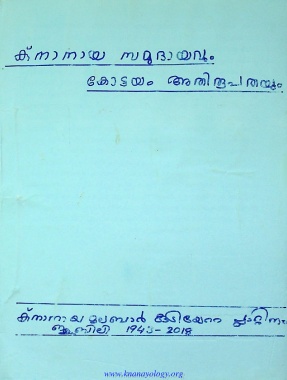 ക്നാനായ സമുദായവും
കോട്ടയം അതിരൂപതയും
ക്നാനായ മലബാർ കുടിയേറ്റ പ്ലാറ്റിനം
ജൂബിലി 1943-2018
www.knanayology.org